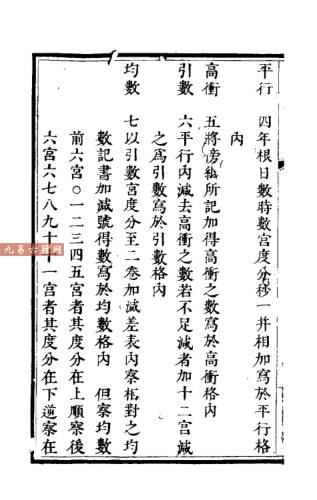 平行　四年根日數時數宮度分秒一并相加寫於平行格
內
高衝　五將傍細所記加得高衝之數寫於高衝格內
引數　六平行內減去高衝之數若不足減者加十二宮減
之為引數寫於引數格內
均數　七以引數宮度分至二卷加減差表內察相對之均
數記書加減號得數寫於均數格內　但察均數
前六宮○一二三四五宮者其度分在上順察後
六宮六七八九十十一宮者其度分在下逆察在
九易古籍网